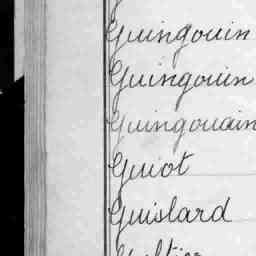 Guingouin
Guingouin
Guingouain
Guiot
Guislard